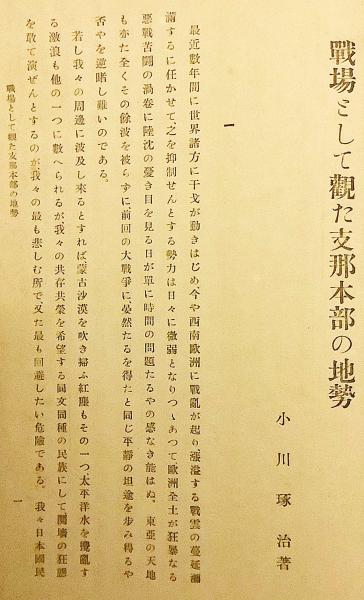 戰場として觀た支那本部の地勢
小川琢治著
一
最近數年間に世界諸方に干戈が動きはじめ、今や西南歐洲に戰亂が起り漲溢する戰雲の蔓延瀰
漫するに任かせて、之を抑制せんとする勢力は日々に微弱となりつゝあつて、歐洲全土が狂暴なる
惡戰苦鬪の渦卷に陸沈の憂き目を見る日が單に時間の問題たるやの感なき能はぬ。東亞の天地
も亦た全くその餘波を被らずに、前回の大戰爭に晏然たるを得たと同じ平靜の坦途を歩み得るや
否やを逆睹し難いのである。
若し我々の周邊に波及し來るとすれば、蒙古沙漠を吹き掃ふ紅塵もその一つ、太平洋水を攪亂す
る激浪も他の一つに數へられるが、我々の共存共榮を希望する同文同種の民族にして鬩墻の狂態
を敢て演ぜんとするのが、我々の最も悲しむ所で又た最も回避したい危險である。我々日本國民
戰場として觀た支那本部の地勢
一